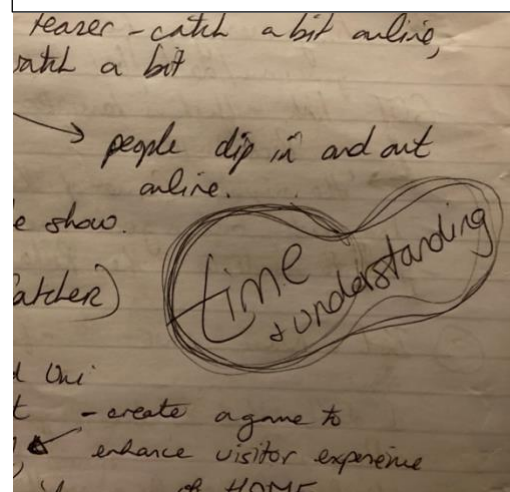 teaser - catch a bit online,
watch a bit
→ people dip in and out
online.
e show.
time
+ understanding
atcher)
d Uni
t - create a game to
enhance visitor experience
of HOME